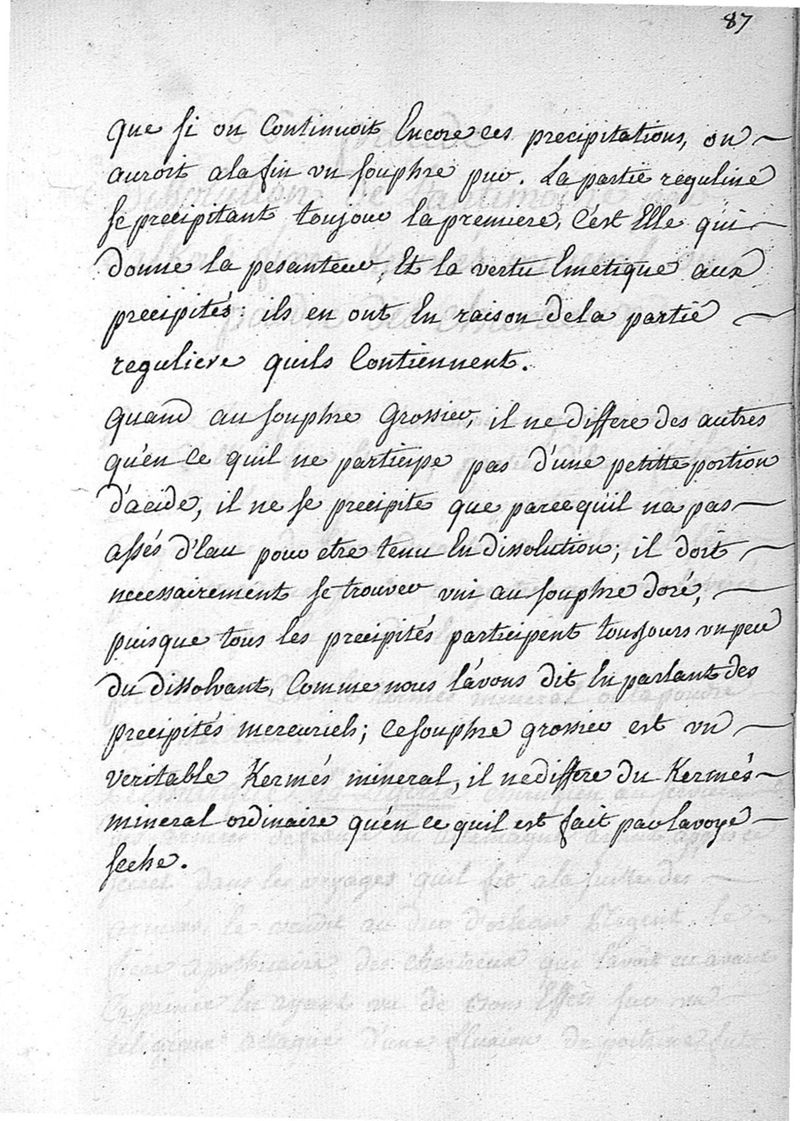 87
que si on Continuoit Encore ces precipitations, on
auroit alafin vn souphre pur. La partie reguline
se precipitant toujour la premiere, C'est Elle qui
donne la pesanteur, Et la vertu Emetique aux
precipités: ils en ont En raison dela partie
reguliere quils Contiennent.
quand au souphre Grossier, il ne differe des autres
qu'en ce quil ne participe pas d'une petitte portion
d'acide, il ne se precipite que parcequ'il na pas
assés d'Eau pour etre tenu En dissolution; il doit
necessairement se trouver vni au souphre doré,
puisque tous les precipités participent toujours vn peu
du dissolvant, Comme nous l'avons dit En parlant des
precipités mercuriels; Ce souphre grossier est vn
veritable Kermés mineral, il ne differe du Kermés
mineral ordinaire qu'en ce quil est fait par la voye
seche.